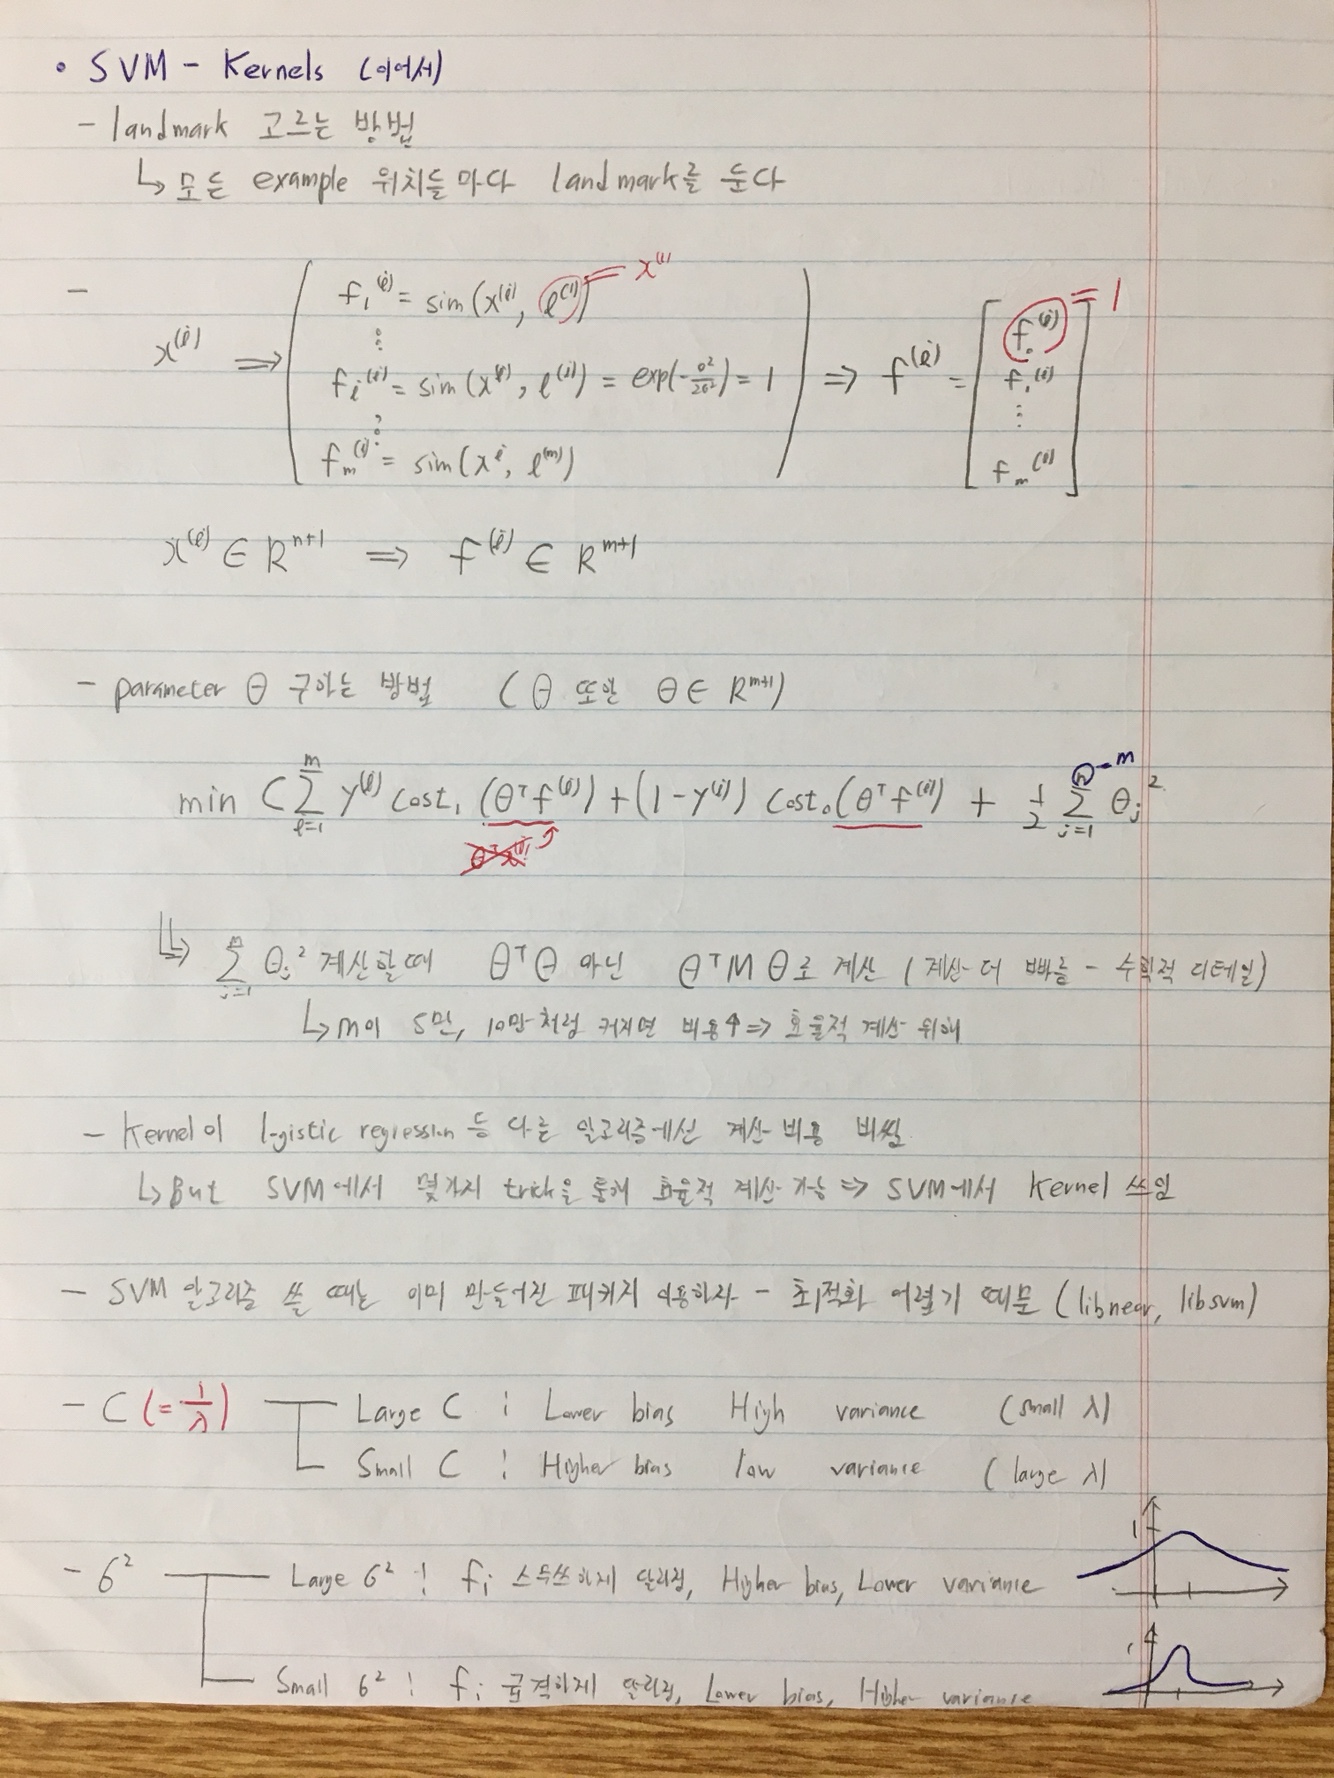 • SVM - Kernels (이어서)
- landmark 고르는 방법
↳ 모든 example 위치들마다 landmark를 둔다
- x⁽ⁱ⁾ ⇒ ( f₁⁽ⁱ⁾ = sim(x⁽ⁱ⁾, l⁽¹⁾) = x⁽¹⁾
⋮
fᵢ⁽ⁱ⁾ = sim(x⁽ⁱ⁾, l⁽ⁱ⁾) = exp(-0²/2σ²) = 1
⋮
fₘ⁽ⁱ⁾ = sim(xⁱ, l⁽ᵐ⁾) ) ⇒ f⁽ⁱ⁾ = [ f₀⁽ⁱ⁾ = 1
f₁⁽ⁱ⁾
⋮
fₘ⁽ⁱ⁾ ]
x⁽ⁱ⁾ ∈ Rⁿ⁺¹ ⇒ f⁽ⁱ⁾ ∈ Rᵐ⁺¹
- parameter θ 구하는 방법 (θ 또한 θ ∈ Rᵐ⁺¹)
min C Σᵢ₌₁ᵐ y⁽ⁱ⁾ cost₁ (θᵀf⁽ⁱ⁾) + (1-y⁽ⁱ⁾) cost₀ (θᵀf⁽ⁱ⁾) + 1/2 Σⱼ₌₁ⁿ θⱼ² n - m
θᵀx⁽ⁱ⁾
↳ Σⱼ₌₁ᵐ θⱼ² 계산할때 θᵀθ 아닌 θᵀMθ로 계산 (계산 더 빠름 - 수학적 디테일)
↳ m이 5만, 10만처럼 커지면 비용↑ ⇒ 효율적 계산 위해
- Kernel이 logistic regression 등 다른 알고리즘에선 계산 비용 비쌈
↳ But SVM에서 몇가지 trick을 통해 효율적 계산 가능 ⇒ SVM에서 Kernel 쓰임
- SVM 알고리즘 쓸 때는 이미 만들어진 패키지 이용하자 - 최적화 어렵기 때문 (libnear, libsvm)
- C (= 1/λ) Large C : Lower bias High variance (small λ)
Small C : Higher bias low variance (large λ)
- σ² Large σ² : fᵢ 스무쓰하게 달라짐, Higher bias, Lower variance
1
Small σ² : fᵢ 급격하게 달라짐, Lower bias, Higher variance
1